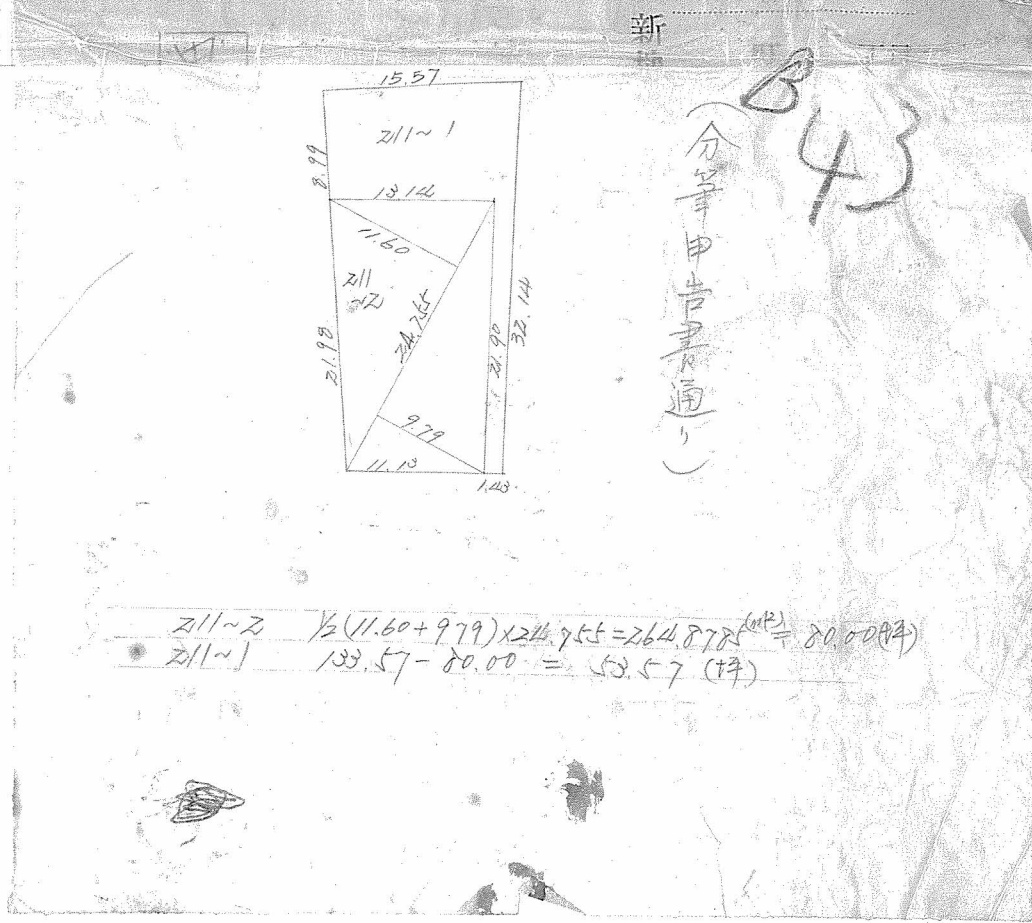 新
B
43
(分筆申告書通り)
15.57
211~1
8.99
13.14
11.60
211
~2
24.755
21.98
21.90
32.14
9.79
11.13
1.43
211~2 1/2(11.60+979)×24.755=264.8785(m2)=80.00(坪)
211~1 133.57-80.00 = 53.57 (坪)